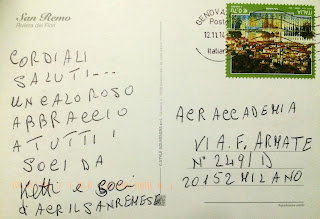 San Remo
Riviera dei Fiori
CORDIALI
SALUTI...
UN CALOROSO
ABBRACCIO
A TUTTI I
SOCI DA
Ketti e soci
d'ACRILSANREMESE
GENOVA
Poste
12.11.1
Italian
ITALIA
ACRACCADEMIA
VIA A. F. ARMATE
N° 249/D
20152 MILANO